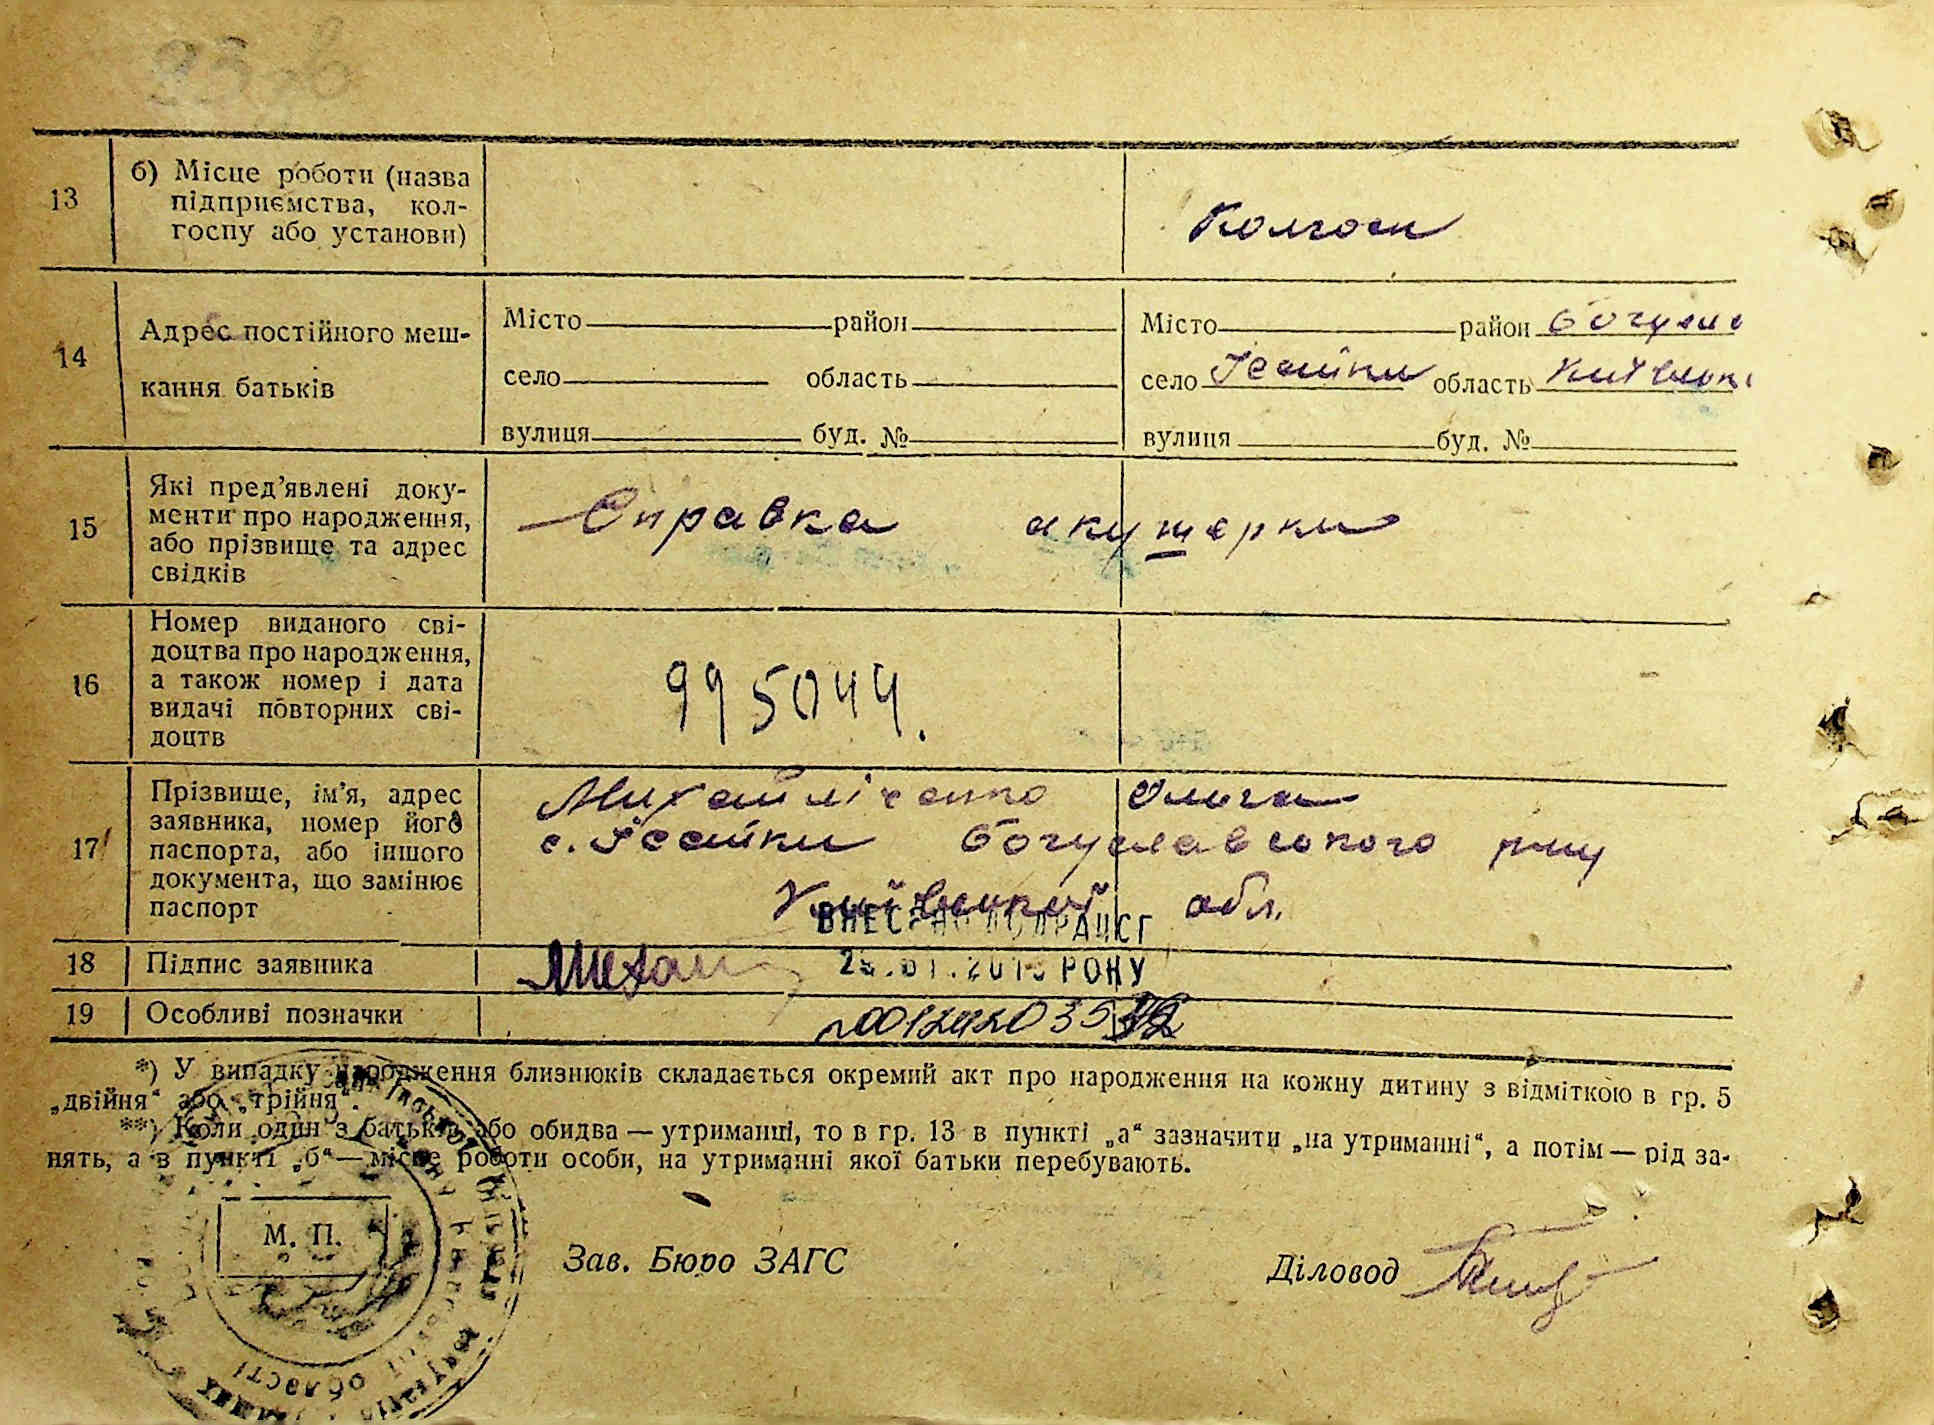 13
б) Місце роботи (назва
підприємства, кол-
госпу або установи)
Колгосп
14
Адрес постійного меш-
кання батьків
Місто район
село область
вулиця буд. №
Місто район Богусл
село Ісайки область Київськ
вулиця буд. №
15
Які пред'явлені доку-
менти про народження,
або прізвище та адрес
свідків
Справка акушерки
16
Номер виданого сві-
доцтва про народження,
а також номер і дата
видачі повторних сві-
доцтв
995044.
17
Прізвище, ім'я, адрес
заявника, номер його
паспорта, або іншого
документа, що замінює
паспорт
Михайліченко Ольга
с. Ісайки Богуславського р-ну
Київської обл.
ВНЕСЕНО ДО ДРАЦСГ
18 Підпис заявника
РОКУ
19 Особливі позначки
*) У випадку народження близнюків складається окремий акт про народження на кожну дитину з відміткою в гр. 5
„двійня“ або „трійня“.
**) Коли один з батьків або обидва — утриманці, то в гр. 13 в пункті „а“ зазначити „на утриманні“, а потім — рід за-
нять, а в пункті „б“ — місце роботи особи, на утриманні якої батьки перебувають.
М. П.
Зав. Бюро ЗАГС
Діловод
області